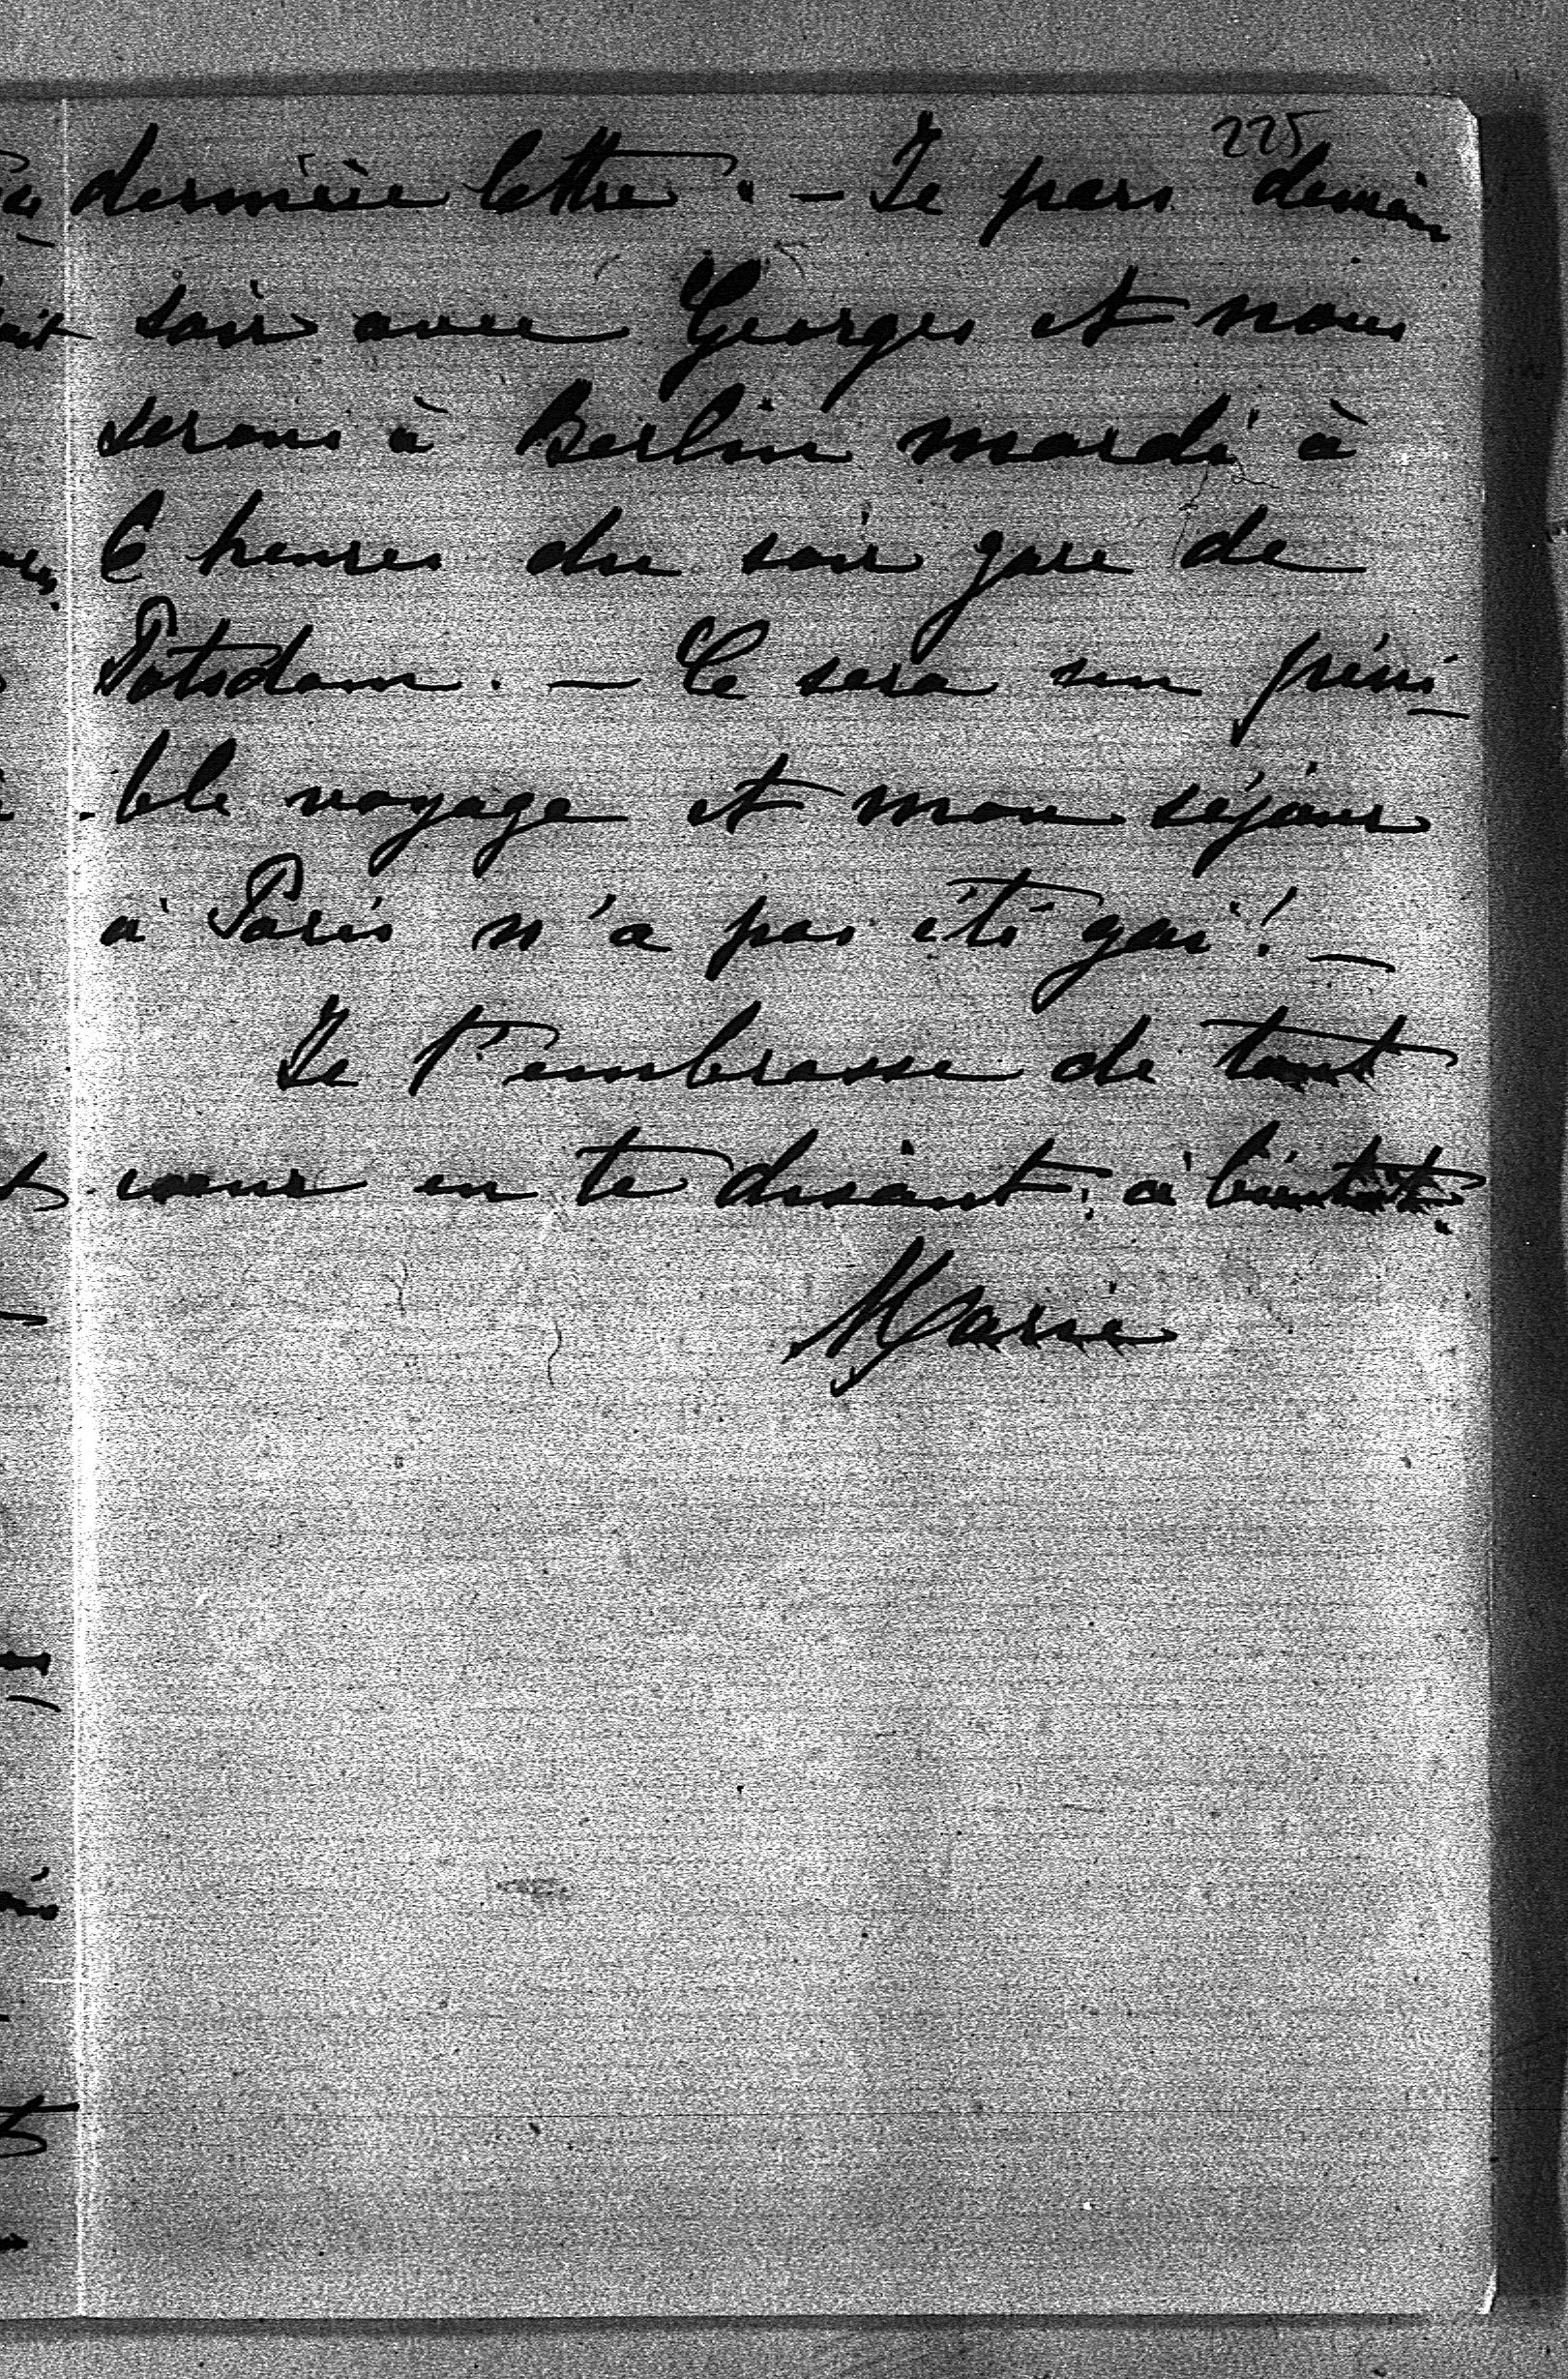 225
dernière lettre. — Je pars demain
soir avec Georges et nous
serons à Berlin mardi à
6 heures du soir gare de
Potsdam. — Ce sera un péni-
-ble voyage et mon séjour
à Paris n'a pas été gai! —
Je t'embrasse de tout
cœur en te disant: à bientôt.
Marie